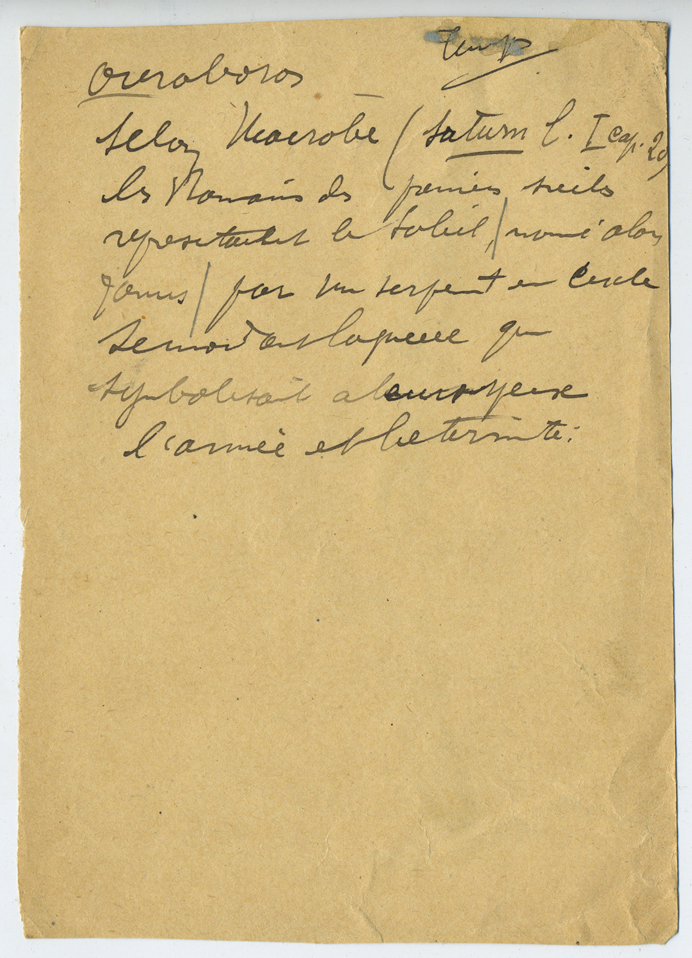 Temps
Ouroboros
Selon Macrobe (Saturn l. I cap. 20)
les Romains des premiers siècles
représentaient le soleil, / nommé alors
Janus / par un serpent en cercle
se mordant la queue qui
symbolisait a leurs yeux
l'année et l'eternité.